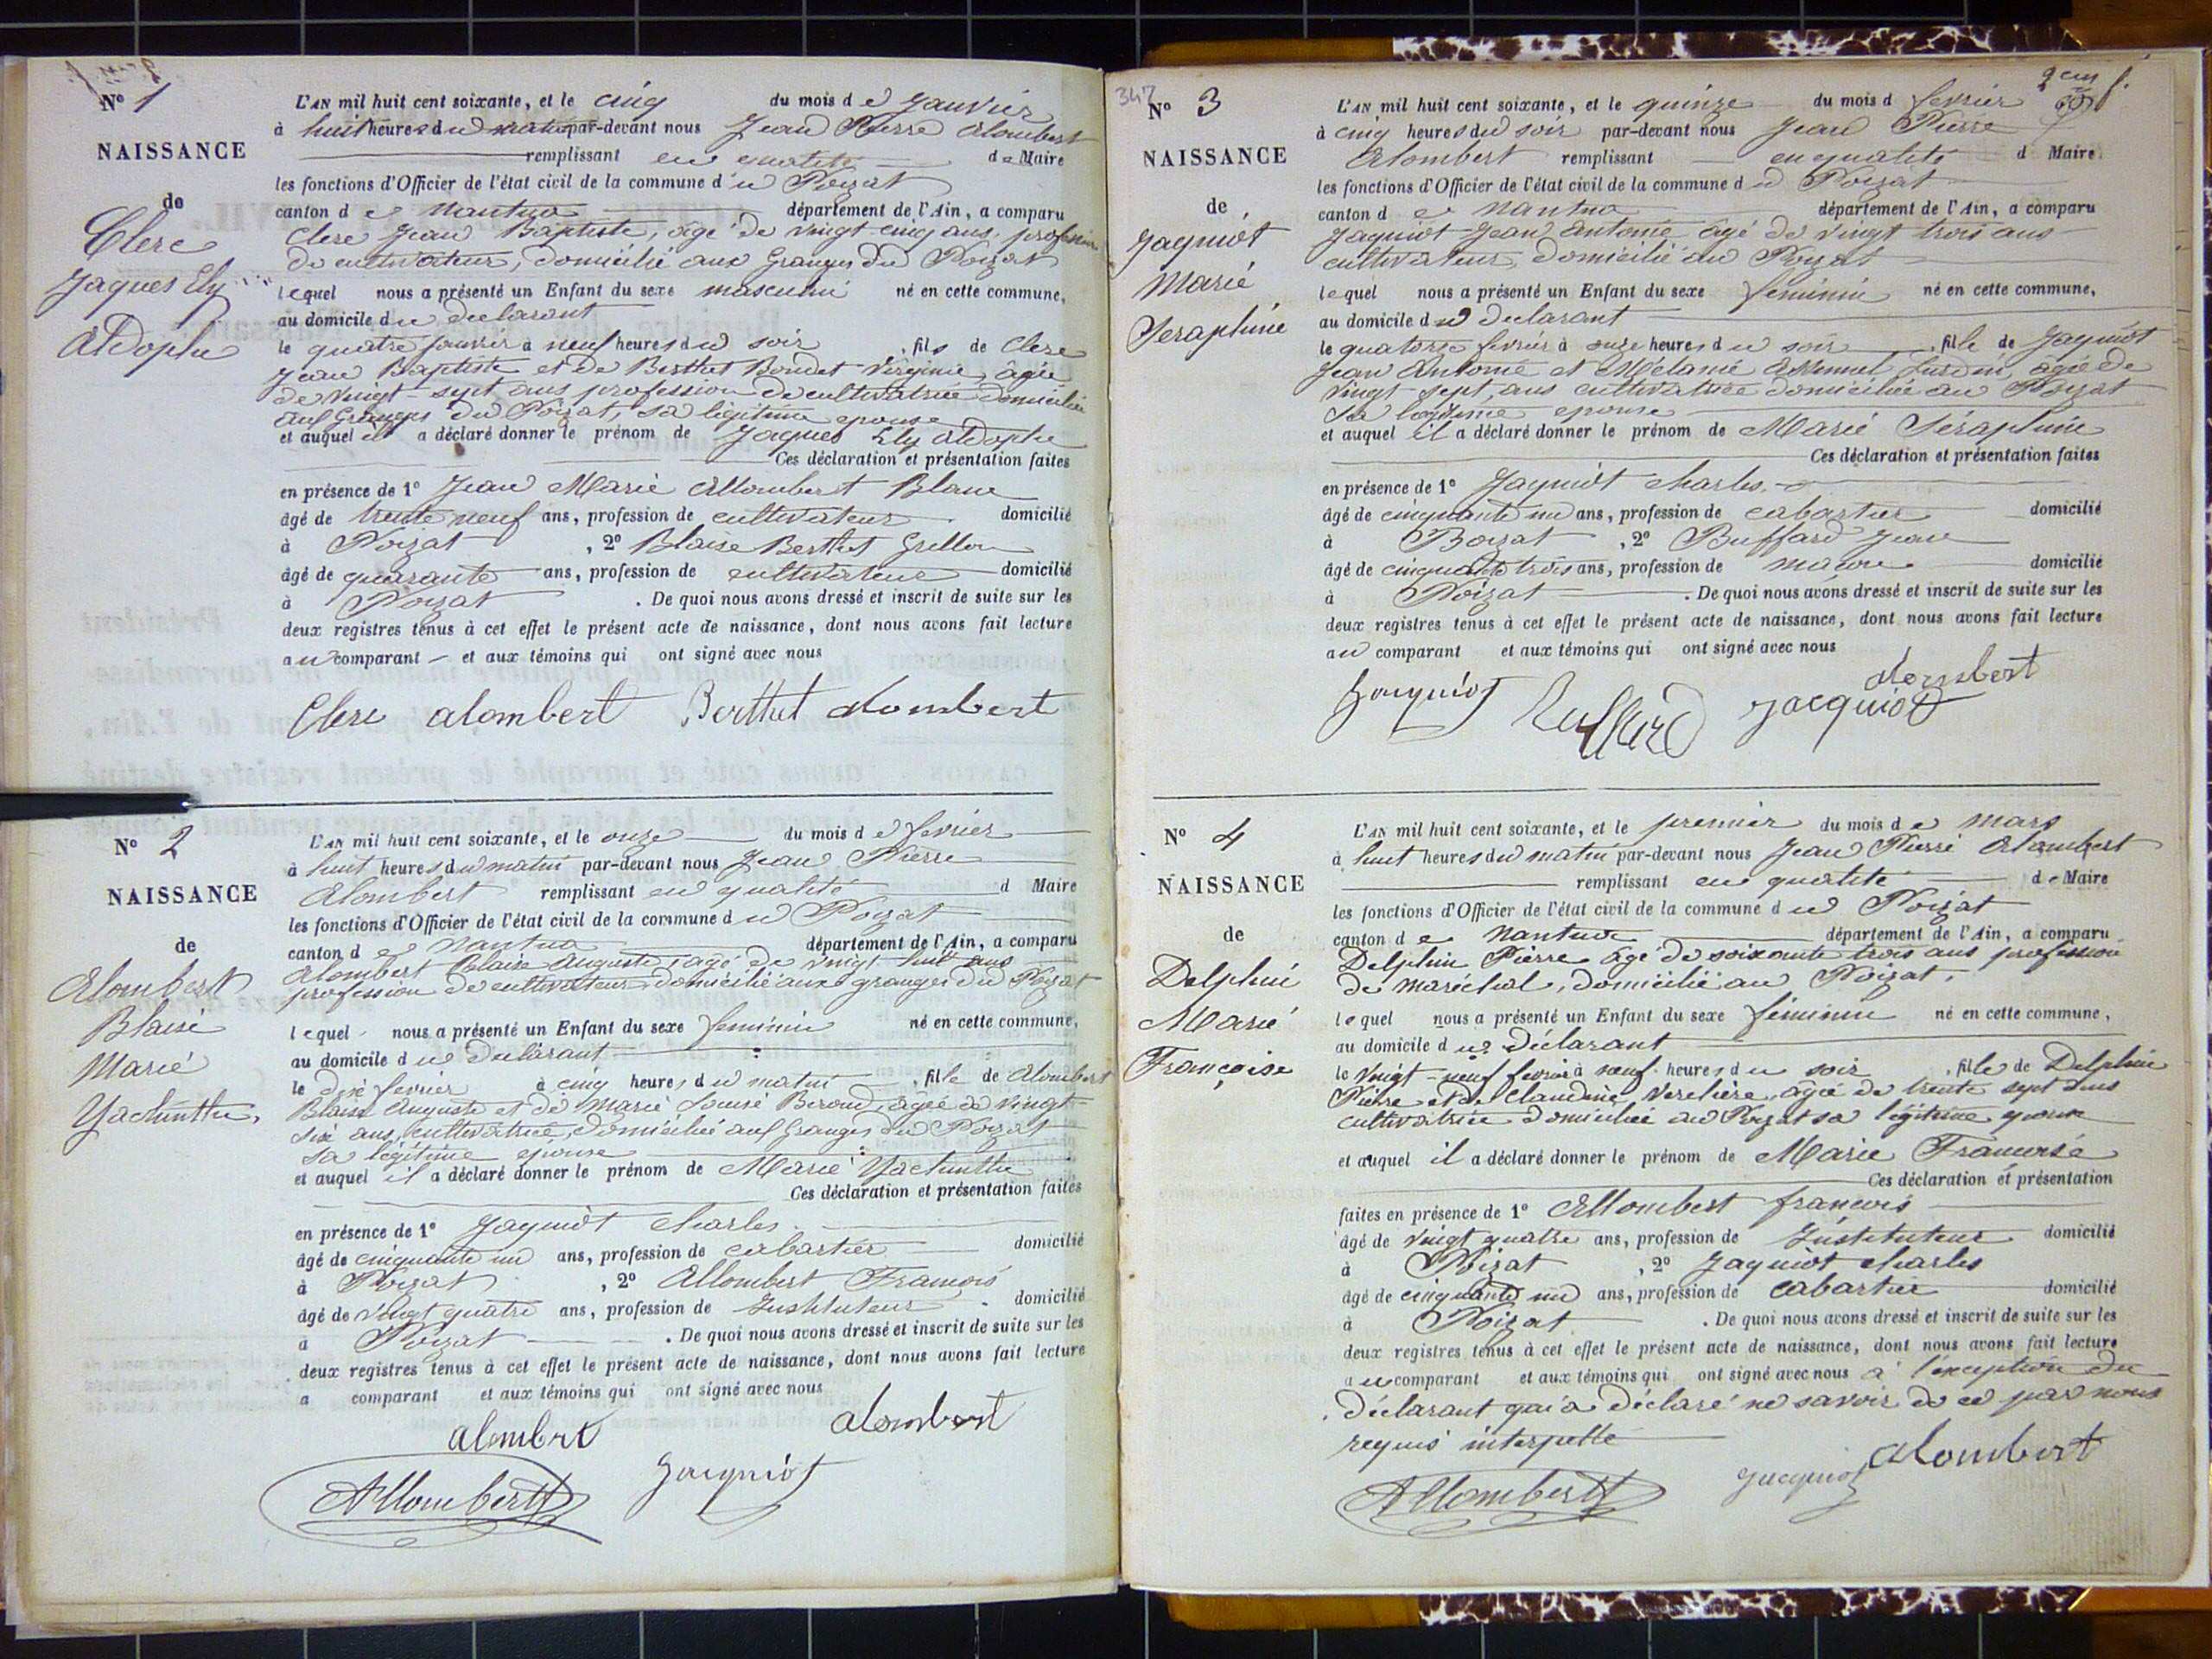 N° 1
NAISSANCE
de
Clerc
Jaques Ely
Aldophe
L'AN mil huit cent soixante, et le cinq du mois de Janvier
à huit heures du matin par-devant nous Jean Pierre Alombert
remplissant en qualité de Maire
les fonctions d'Officier de l'état civil de la commune du Poizat
canton de Nantua département de l'Ain, a comparu
Clerc Jean Baptiste, âgé de vingt-cinq ans, profession
de cultivateur, domicilié aux Granges du Poizat
lequel nous a présenté un Enfant du sexe masculin né en cette commune,
au domicile du declarant
le quatre janvier à neuf heures du soir, fils de Clerc
Jean Baptiste et de Berthet Bondet Virginie, âgée
de vingt-sept ans profession de cultivatrice domiciliée
aux Granges du Poizat, sa légitime epouse
et auquel il a déclaré donner le prénom de Jaques Ely Aldophe
Ces déclaration et présentation faites
en présence de 1° Jean Marie Allombert Blanc
âgé de trente neuf ans, profession de cultivateur domicilié
à Poizat, 2° Blaise Berthet Grillon
âgé de quarante ans, profession de cultivateur domicilié
à Poizat. De quoi nous avons dressé et inscrit de suite sur les
deux registres tenus à cet effet le présent acte de naissance, dont nous avons fait lecture
au comparant et aux témoins qui ont signé avec nous
Clerc alombert Berthet alombert
N° 2
NAISSANCE
de
Alombert
Blaise
Marie
Yachinthe,
L'AN mil huit cent soixante, et le onze du mois de fevrier
à huit heures du matin par-devant nous Jean Pierre
Alombert remplissant en qualité d Maire
les fonctions d'Officier de l'état civil de la commune du Poizat
canton de Nantua département de l'Ain, a comparu
Alombert Blaise Auguste, agé de vingt huit ans
profession de cultivateur domicilié aux granges du Poizat
lequel nous a présenté un Enfant du sexe feminin né en cette commune,
au domicile du declarant
le dix fevrier à cinq heures du matin, fille de Alombert
Blaise Auguste et de Marie Louise Beroud, âgée de vingt
six ans, cultivatrice, domiciliée aux Granges du Poizat
sa légitime epouse
et auquel il a déclaré donner le prénom de Marie Yachinthe
Ces déclaration et présentation faites
en présence de 1° Jaquiot Charles
âgé de cinquante un ans, profession de cabartier domicilié
à Poizat, 2° Allombert François
âgé de vingt quatre ans, profession de Instituteur domicilié
à Poizat. De quoi nous avons dressé et inscrit de suite sur les
deux registres tenus à cet effet le présent acte de naissance, dont nous avons fait lecture
a comparant et aux témoins qui ont signé avec nous
alombert alombert
Allombert Jacquiot
347
2em f.
N° 3
NAISSANCE
de
Jaquiot
Marie
Seraphine
L'AN mil huit cent soixante, et le quinze du mois d fevrier
à cinq heures du soir par-devant nous Jean Pierre
Alombert remplissant en qualité d Maire
les fonctions d'Officier de l'état civil de la commune du Poizat
canton de Nantua département de l'Ain, a comparu
Jaquiot Jean Antoine agé de vingt trois ans
cultivateur, domicilié au Poizat
lequel nous a présenté un Enfant du sexe féminin né en cette commune,
au domicile du declarant
le quatorze fevrier à onze heures du soir, fille de Jaquiot
Jean Antoine et Mélanie, agée de
vingt sept, ans cultivatrice domiciliée au Poizat
sa légitime epouse
et auquel il a déclaré donner le prénom de Marie Séraphine
Ces déclaration et présentation faites
en présence de 1° Jaquiot Charles
âgé de cinquante un ans, profession de cabartier domicilié
à Poizat, 2° Buffard Jean
âgé de cinquante trois ans, profession de maçon domicilié
à Poizat. De quoi nous avons dressé et inscrit de suite sur les
deux registres tenus à cet effet le présent acte de naissance, dont nous avons fait lecture
au comparant et aux témoins qui ont signé avec nous
alombert
Jacquiot Buffard Jacquiot
N° 4
NAISSANCE
de
Delphin
Marie
Françoise
L'AN mil huit cent soixante, et le premier du mois de mars
à huit heures du matin par-devant nous Jean Pierre Alombert
remplissant en qualité de Maire
les fonctions d'Officier de l'état civil de la commune du Poizat
canton de Nantua département de l'Ain, a comparu
Delphin Pierre âgé de soixante trois ans profession
de maréchal, domicilié au Poizat,
lequel nous a présenté un Enfant du sexe féminin né en cette commune,
au domicile du déclarant
le vingt-neuf fevrier à neuf heures du soir, fille de Delphin
Pierre et de Claudine Verchère, agée de trente sept ans
cultivatrice domiciliée au Poizat sa légitime epouse
et auquel il a déclaré donner le prénom de Marie Francoise
Ces déclaration et présentation
faites en présence de 1° Allombert francois
âgé de vingt quatre ans, profession de Instituteur domicilié
à Poizat, 2° Jaquiot Charles
âgé de cinquante un ans, profession de cabartier domicilié
à Poizat. De quoi nous avons dressé et inscrit de suite sur les
deux registres tenus à cet effet le présent acte de naissance, dont nous avons fait lecture
au comparant et aux témoins qui ont signé avec nous à l'exception du
déclarant qui a déclaré ne savoir de ce par nous
requis interpellé
Allombert Jacquiot Alombert